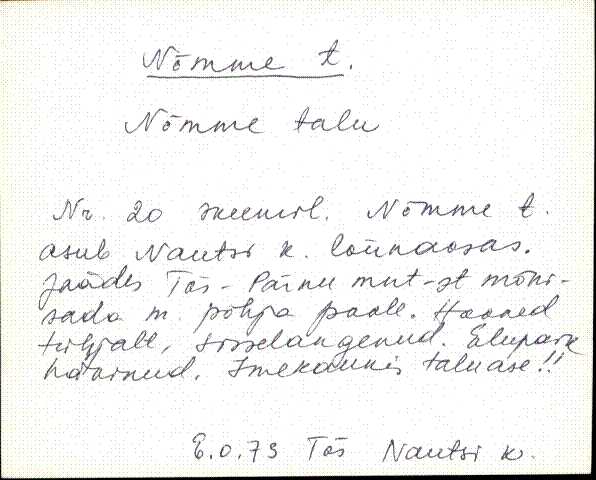 Nõmme t.
Nõmme talu
Nr. 20 skeemil. Nõmme t.
asub Nautsi k. lõunaosas.
Jäädes Tõs-Pärnu mnt-st mõni-
sada m. põhja poole. Hooned
tühjalt, sisselangenud. Elupaik
hävinud. Imekaunis taluase!!
E.O.73 Tõs Nautsi k.